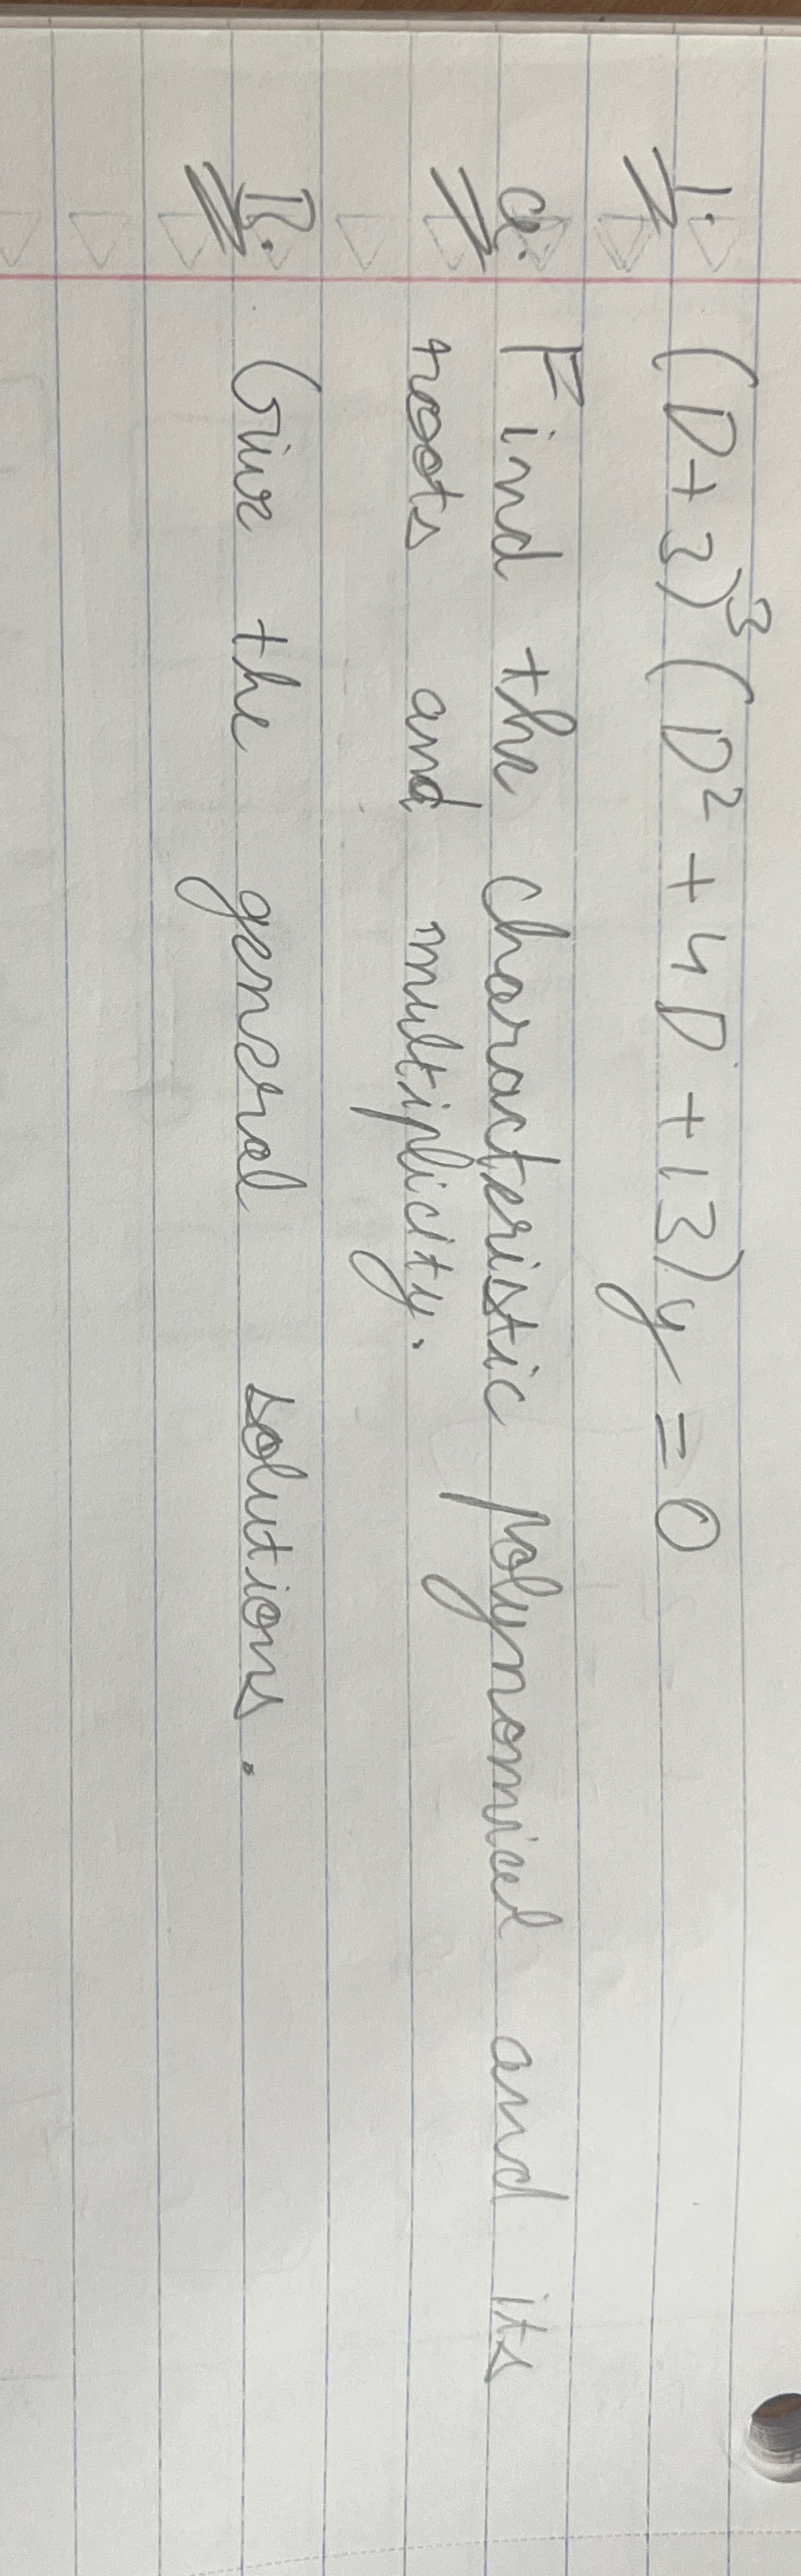 1. (D+3)³(D²+4D+13)y=0
a. Find the characteristic polynomial and its
roots and multiplicity.
B. Give the general solutions.